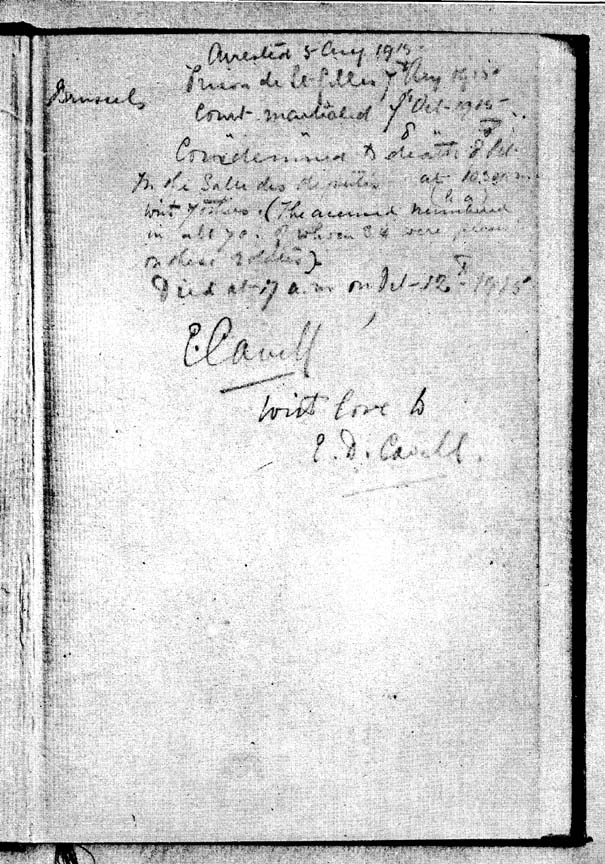 Arrested 5 Aug 1915
Brussels Prison de St Gilles 7th Aug 1915
Court-martialed 7th Oct-1915
Condemned to death 8th Oct-
In the Salle des députés at 10.30 a.m.
with 7 others. (The accused numbered
in all 70. of whom 34 were present
on these 2 dates)
Died at 7 a.m. on Oct-12th-1915
E. Cavell
With love to
E. D. Cavell.